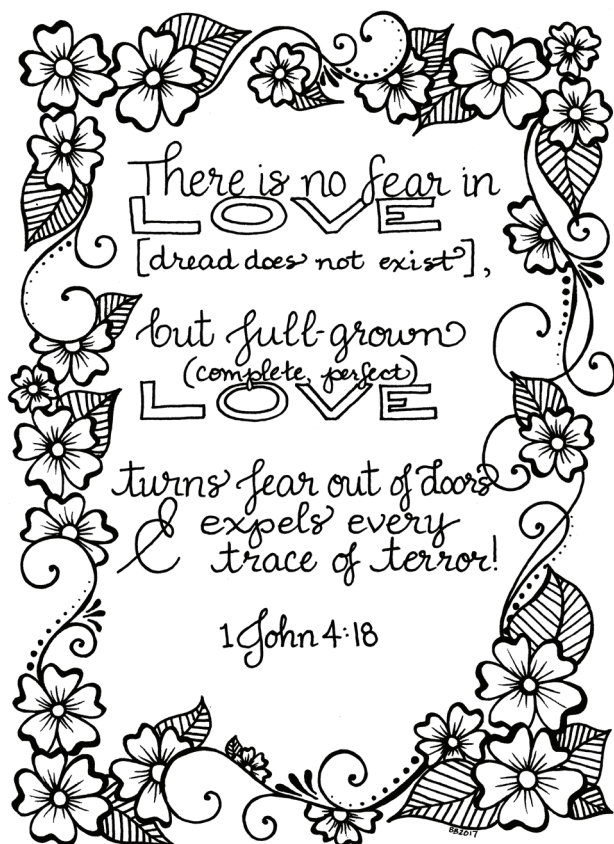 There is no fear in
LOVE
[dread does not exist],
but full-grown
(complete, perfect)
LOVE
turns fear out of doors
& expels every
trace of terror!
1 John 4:18
BB2017